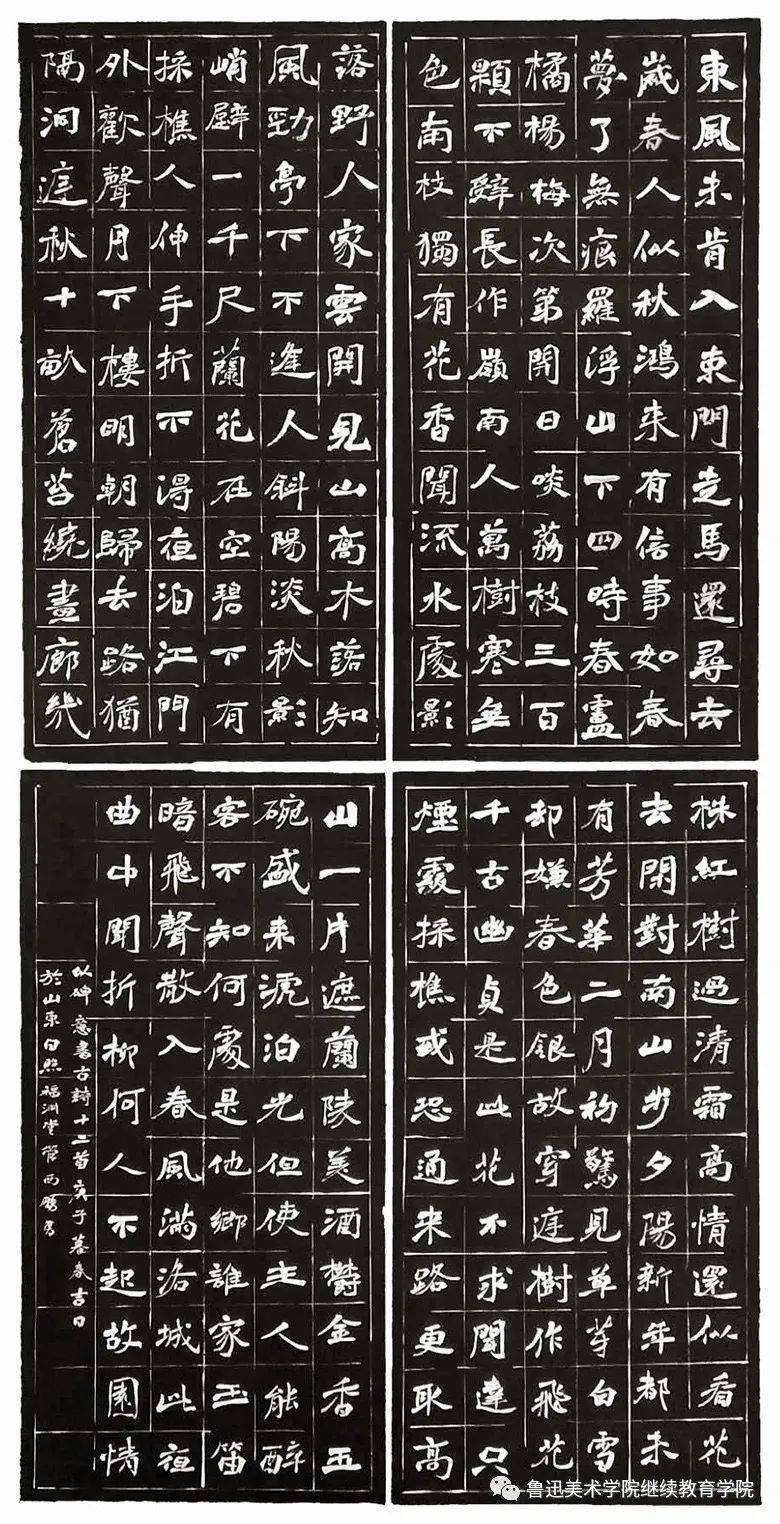 東風未肯入東門走馬還尋去
歲春人似秋鴻来有信事如春
夢了無痕羅浮山下四時春盧
橘楊梅次第開日啖荔枝三百
顆不辭長作嶺南人萬樹寒無
色南枝獨有花香聞流水處影
落野人家雲開見山高木落知
風勁亭下不逢人斜陽淡秋影
峭壁一千尺蘭花在空碧下有
採樵人伸手折不得夜泊江門
外歡聲月下樓明朝歸去路猶
隔洞庭秋十畝蒼苔繞畫廊幾
株紅樹過清霜高情還似看花
去閑對南山步夕陽新年都未
有芳華二月初驚見草芽白雪
却嫌春色銀故穿庭樹作飛花
千古幽貞是此花不求聞達只
煙霞採樵或恐通来路更取高
山一片遮蘭陵美酒鬱金香玉
碗盛来琥泊光但使主人能醉
客不知何處是他鄉誰家玉笛
暗飛聲散入春風滿洛城此夜
曲中聞折柳何人不起故園情
以碑意書古詩十二首庚子暮春吉日
於山東日照福渊堂管西書
鲁迅美术学院继续教育学院